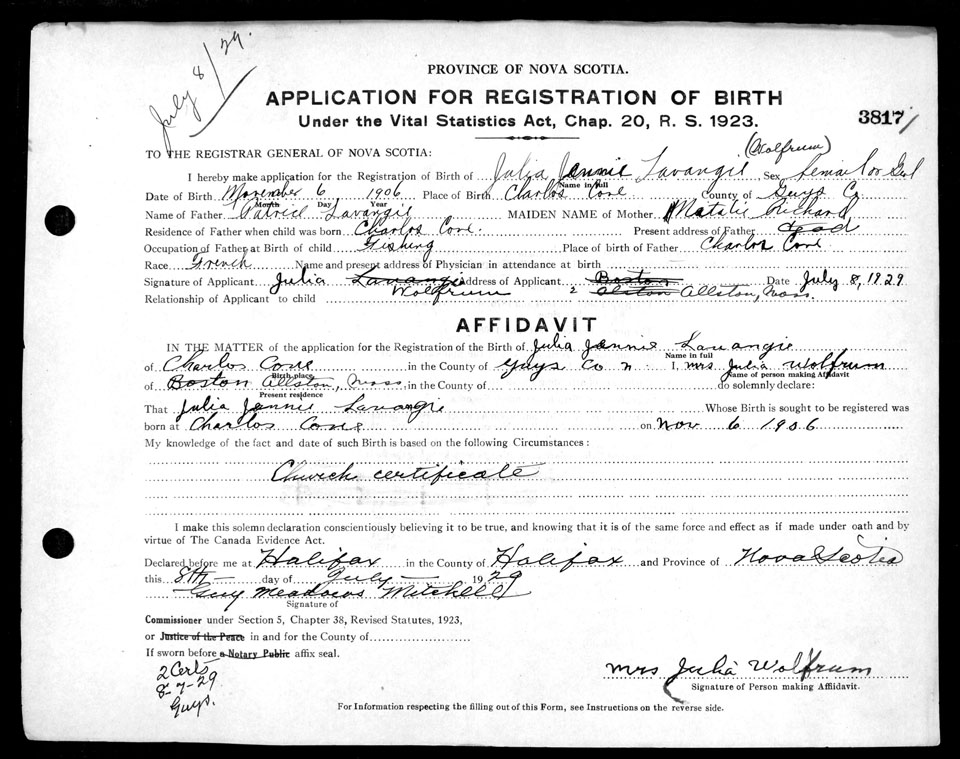 July 8/29.
PROVINCE OF NOVA SCOTIA.
APPLICATION FOR REGISTRATION OF BIRTH
Under the Vital Statistics Act, Chap. 20, R. S. 1923.
3817
TO THE REGISTRAR GENERAL OF NOVA SCOTIA:
(Wolfrum)
I hereby make application for the Registration of Birth of Julia Jennie Lavangie Sex female or Girl
Name in full
Date of Birth November 6 1906 Place of Birth Charlos Cove County of Guys Co
Month Day Year
Name of Father Lavangie MAIDEN NAME of Mother Natalie Richard
Residence of Father when child was born Charlos Cove. Present address of Father dead
Occupation of Father at Birth of child Fishing Place of birth of Father Charlos Cove
Race French Name and present address of Physician in attendance at birth
Signature of Applicant Julia Lavangie Address of Applicant Boston Date July 8, 1929
Wolfrum 2 Alston Allston, Mass.
Relationship of Applicant to child
AFFIDAVIT
IN THE MATTER of the application for the Registration of the Birth of Julia Jennie Lavangie
Name in full
of Charlos Cove in the County of Guys Co I, Mrs Julia Wolfrum
Birth place Name of person making Affidavit
of Boston Allston, Mass in the County of to solemnly declare:
Present residence
That Julia Jennie Lavangie Whose Birth is sought to be registered was
born at Charlos Cove on Nov 6 1906
My knowledge of the fact and date of such Birth is based on the following Circumstances:
Church certificate
I make this solemn declaration conscientiously believing it to be true, and knowing that it is of the same force and effect as if made under oath and by
virtue of The Canada Evidence Act.
Declared before me at Halifax in the County of Halifax and Province of Nova Scotia
this 8th day of July 1929
Guy Meadows Mitchell
Signature of
Commissioner under Section 5, Chapter 38, Revised Statutes, 1923,
or Justice of the Peace in and for the County of
If sworn before a Notary Public affix seal.
2 Certs
8-7-29
Guys.
Mrs Julia Wolfrum
Signature of Person making Affidavit.
For Information respecting the filling out of this Form, see Instructions on the reverse side.